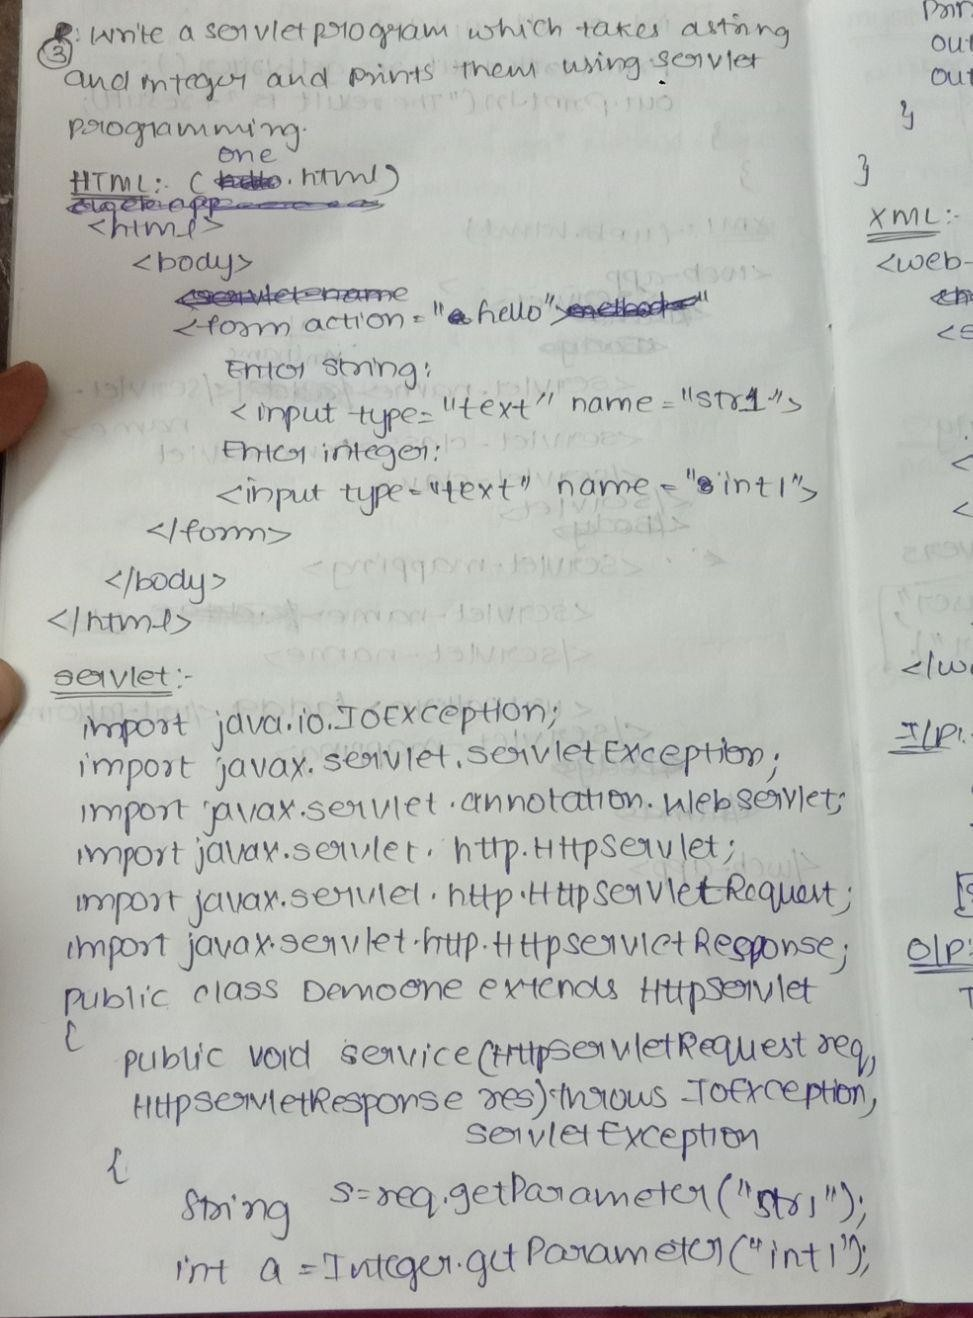 3: Write a servlet program which takes a string
and integer and prints them using servlet
programming.
one
HTML:- ( .html)
<html>
<body>
<servlet-name
<form action = "hello">
Enter string:
<input type="text" name="str1">
Enter integer:
<input type="text" name="int1">
</form>
</body>
</html>
servlet:-
import java.io.IOException;
import javax.servlet.servletException;
import javax.servlet.annotation.Webservlet;
import javax.servlet.http.HttpServlet;
import javax.servlet.http.HttpServletRequest;
import javax.servlet.http.HttpservletResponse;
public class Demoone extends Httpservlet
{
public void service(HttpServletRequest req,
HttpservletResponse res) throws IOException,
servletException
{
String s=req.getParameter("str1");
int a =Integer.getParameter("int1");
prin
out
out
}
}
XML:-
<web-
<s
<
<
</w
I/P:
O/P:
T